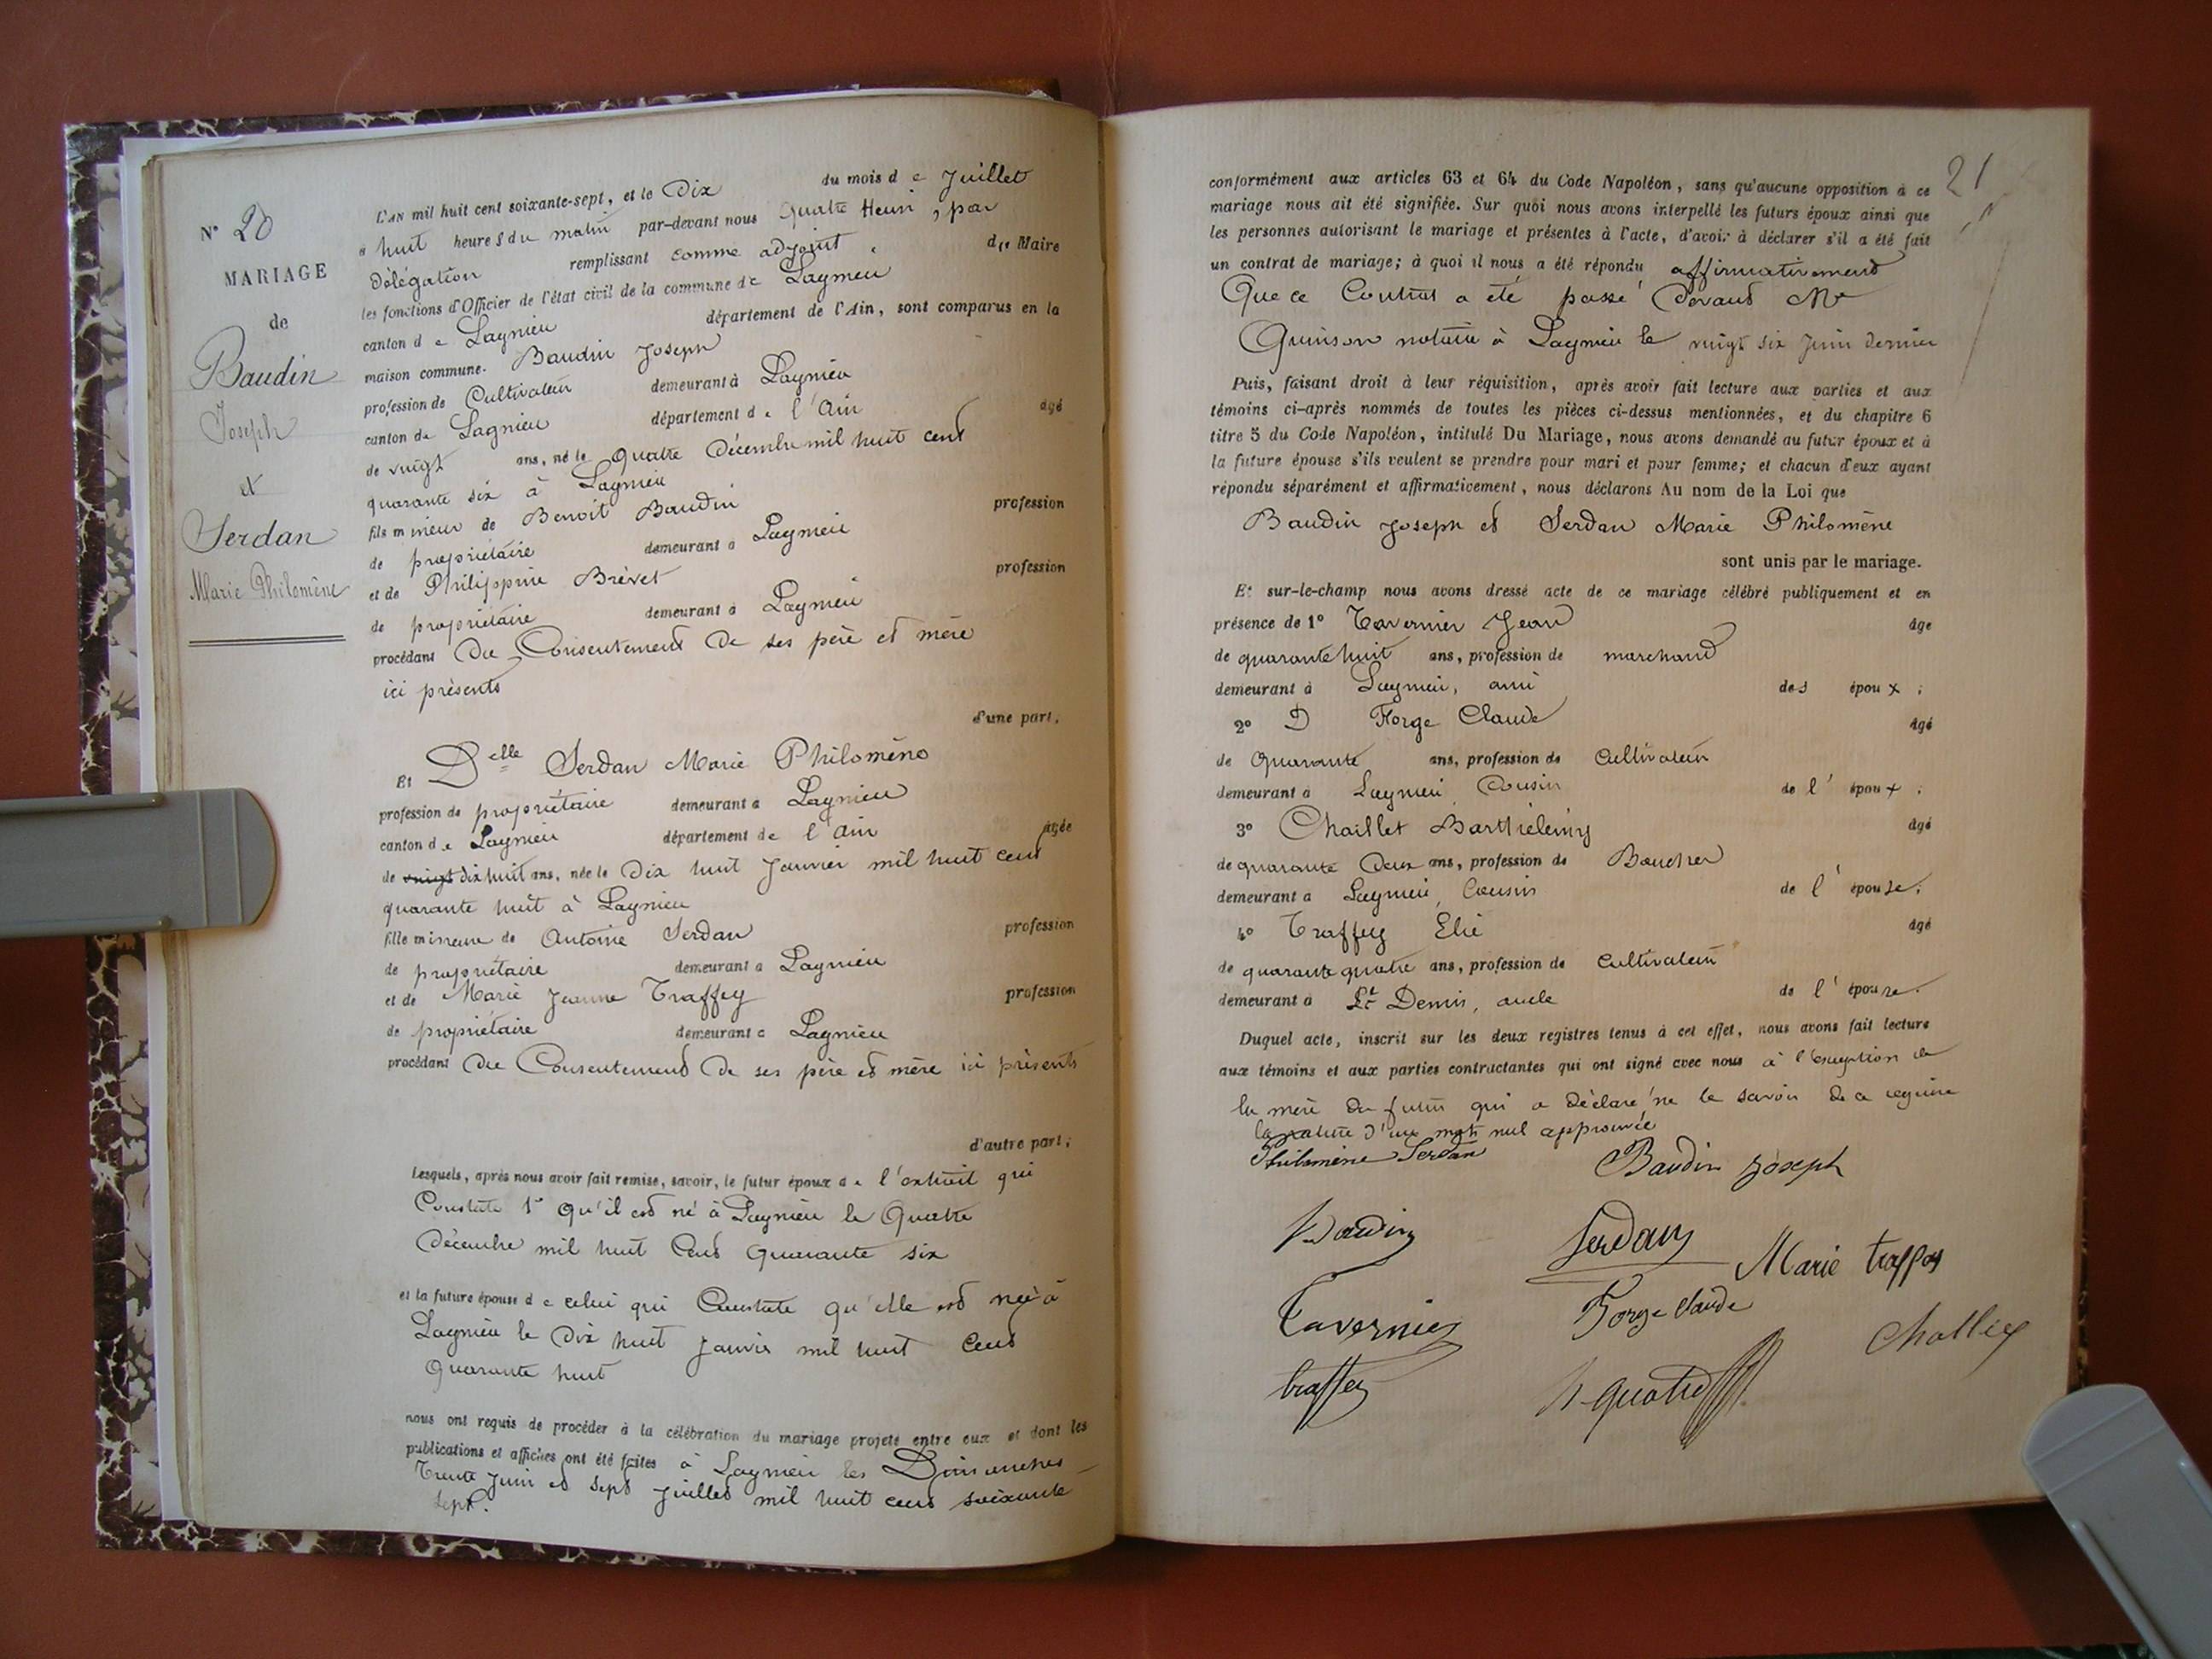 N° 20
MARIAGE
de
Baudin
Joseph
et
Serdan
Marie Philomène
L'AN mil huit cent soixante-sept, et le Dix du mois de Juillet
à huit heures du matin par-devant nous Quatre Henri, par
délégation remplissant comme adjoint du Maire
les fonctions d'Officier de l'état civil de la commune de Lagnieu
canton de Lagnieu département de l'Ain, sont comparus en la
maison commune. Baudin Joseph
profession de Cultivateur demeurant à Lagnieu
canton de Lagnieu département de l'Ain âgé
de vingt ans, né le Quatre Décembre mil huit cent
quarante six à Lagnieu
fils mineur de Benoit Baudin profession
de propriétaire demeurant à Lagnieu
et de Philippine Brevet profession
de propriétaire demeurant à Lagnieu
procédant Du Consentement de ses père et mère
ici présents
d'une part,
Et Delle Serdan Marie Philomène
profession de propriétaire demeurant à Lagnieu
canton de Lagnieu département de l'Ain âgée
de vingt dix huit ans, née le Dix huit Janvier mil huit cent
quarante huit à Lagnieu
fille mineure de Antoine Serdan profession
de propriétaire demeurant à Lagnieu
et de Marie Jeanne Traffey profession
de propriétaire demeurant à Lagnieu
procédant du Consentement de ses père et mère ici présents
d'autre part;
Lesquels, après nous avoir fait remise, savoir, le futur époux de l'extrait qui
Constate 1° qu'il est né à Lagnieu le Quatre
Décembre mil huit Cent Quarante six
et la future épouse de celui qui Constate qu'elle est née à
Lagnieu le Dix huit Janvier mil huit Cent
Quarante huit
nous ont requis de procéder à la célébration du mariage projeté entre eux et dont les
publications et affiches ont été faites à Lagnieu les Dimanches
Trente Juin et sept Juillet mil huit cent soixante
sept.
21
conformément aux articles 63 et 64 du Code Napoléon, sans qu'aucune opposition à ce
mariage nous ait été signifiée. Sur quoi nous avons interpellé les futurs époux ainsi que
les personnes autorisant le mariage et présentes à l'acte, d'avoir à déclarer s'il a été fait
un contrat de mariage; à quoi il nous a été répondu affirmativement
Que ce Contrat a été passé Devant Me
Quinson notaire à Lagnieu le vingt six Juin dernier
Puis, faisant droit à leur réquisition, après avoir fait lecture aux parties et aux
témoins ci-après nommés de toutes les pièces ci-dessus mentionnées, et du chapitre 6
titre 5 du Code Napoléon, intitulé Du Mariage, nous avons demandé au futur époux et à
la future épouse s'ils veulent se prendre pour mari et pour femme; et chacun d'eux ayant
répondu séparément et affirmativement, nous déclarons Au nom de la Loi que
Baudin Joseph et Serdan Marie Philomène
sont unis par le mariage.
Et sur-le-champ nous avons dressé acte de ce mariage célébré publiquement et en
présence de 1° Tavernier Jean âgé
de quarante huit ans, profession de marchand
demeurant à Lagnieu, ami des époux;
2° D Forge Claude âgé
de Quarante ans, profession de Cultivateur
demeurant à Lagnieu Cousin de l'époux;
3° Chaillet Barthélemy âgé
de quarante Deux ans, profession de Boucher
demeurant à Lagnieu, Cousin de l'épouse,
4° Traffey Elie âgé
de quarante quatre ans, profession de Cultivateur
demeurant à St Denis, oncle de l'épouse.
Duquel acte, inscrit sur les deux registres tenus à cet effet, nous avons fait lecture
aux témoins et aux parties contractantes qui ont signé avec nous à l'exception de
la mère du futur qui a déclaré ne le savoir de ce requise
la rature d'un mot nul approuvée
Philomène Serdan Baudin Joseph
Baudin Serdan Marie traffay
Tavernier Forge Claude
traffey H Quatre